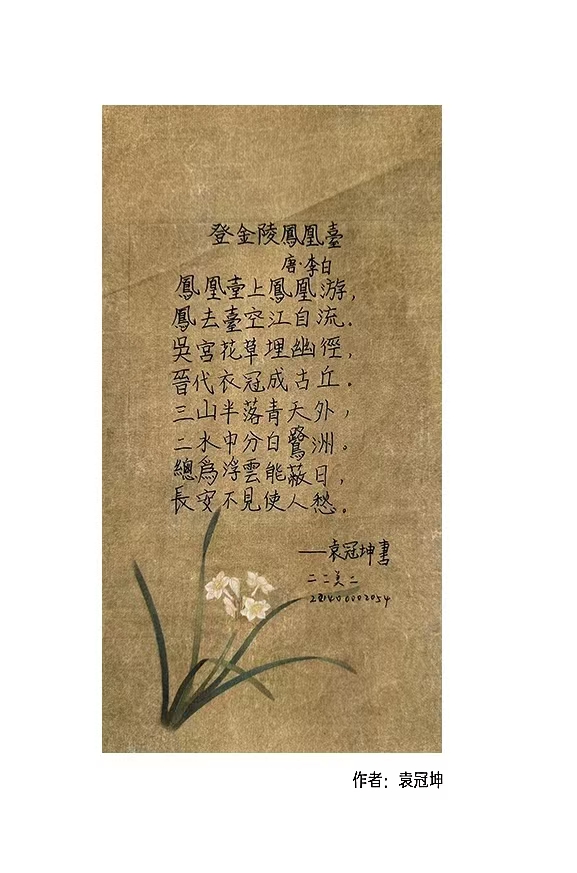 登金陵鳳凰臺
唐·李白
鳳凰臺上鳳凰游，
鳳去臺空江自流.
吳宮花草埋幽徑，
晉代衣冠成古丘.
三山半落青天外，
二水中分白鷺洲。
總為浮雲能蔽日，
長安不見使人愁.
——袁冠坤書
二二美二
作者：袁冠坤